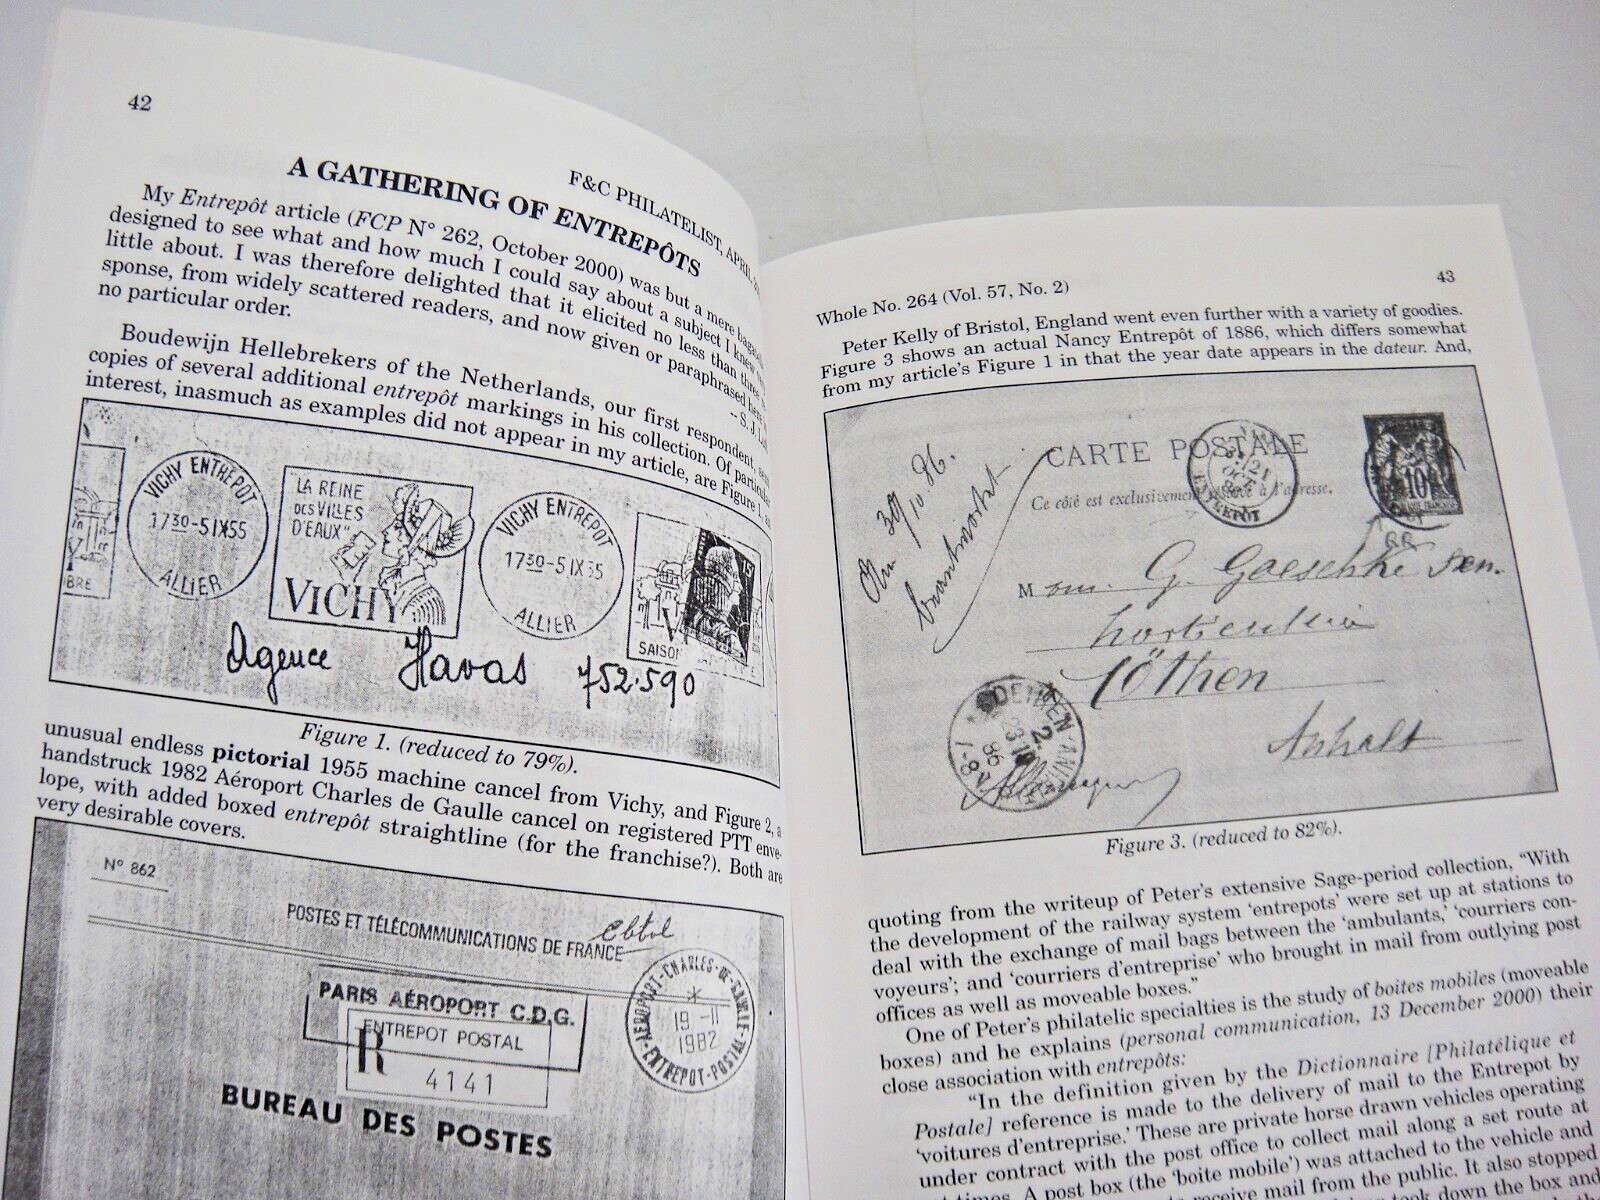 42
F&C PHILATELIST, APRIL
A GATHERING OF ENTREPÔTS
My Entrepôt article (FCP N° 262, October 2000) was but a mere
designed to see what and how much I could say about a subject I knew
little about. I was therefore delighted that it elicited no less than three
sponse, from widely scattered readers, and now given or paraphrased
no particular order.
-- S. J.
Boudewijn Hellebrekers of the Netherlands, our first respondent,
copies of several additional entrepôt markings in his collection. Of
interest, inasmuch as examples did not appear in my article, are Figure 1,
VICHY ENTREPOT
1730-5IX55
ALLIER
LA REINE
DES VILLES
D'EAUX"
VICHY
VICHY ENTREPOT
1730-5IX55
ALLIER
SAISON
Agence Havas 752.590
Figure 1. (reduced to 79%).
unusual endless pictorial 1955 machine cancel from Vichy, and Figure 2, a
handstruck 1982 Aéroport Charles de Gaulle cancel on registered PTT enve-
lope, with added boxed entrepôt straightline (for the franchise?). Both are
very desirable covers.
N° 862
POSTES ET TÉLÉCOMMUNICATIONS DE FRANCE
PARIS AÉROPORT C.D.G.
ENTREPOT POSTAL
R
4141
AÉROPORT-CHARLES-DE-GAULLE
19 -11
1982
ENTREPOT-POSTAL
BUREAU DES POSTES
Whole No. 264 (Vol. 57, No. 2)
43
Peter Kelly of Bristol, England went even further with a variety of goodies.
Figure 3 shows an actual Nancy Entrepôt of 1886, which differs somewhat
from my article's Figure 1 in that the year date appears in the dateur. And,
CARTE POSTALE
Ce côté est exclusivement réservé à l'adresse.
10
M
G. Goeschke sen.
Cöthen
Anhalt
Figure 3. (reduced to 82%).
quoting from the writeup of Peter's extensive Sage-period collection, "With
the development of the railway system 'entrepots' were set up at stations to
deal with the exchange of mail bags between the 'ambulants,' 'courriers con-
voyeurs'; and 'courriers d'entreprise' who brought in mail from outlying post
offices as well as moveable boxes."
One of Peter's philatelic specialties is the study of boites mobiles (moveable
boxes) and he explains (personal communication, 13 December 2000) their
close association with entrepôts:
"In the definition given by the Dictionnaire [Philatélique et
Postale] reference is made to the delivery of mail to the Entrepot by
'voitures d'entreprise.' These are private horse drawn vehicles operating
under contract with the post office to collect mail along a set route at
times. A post box (the 'boite mobile') was attached to the vehicle and
receive mail from the public. It also stopped
took down the box and